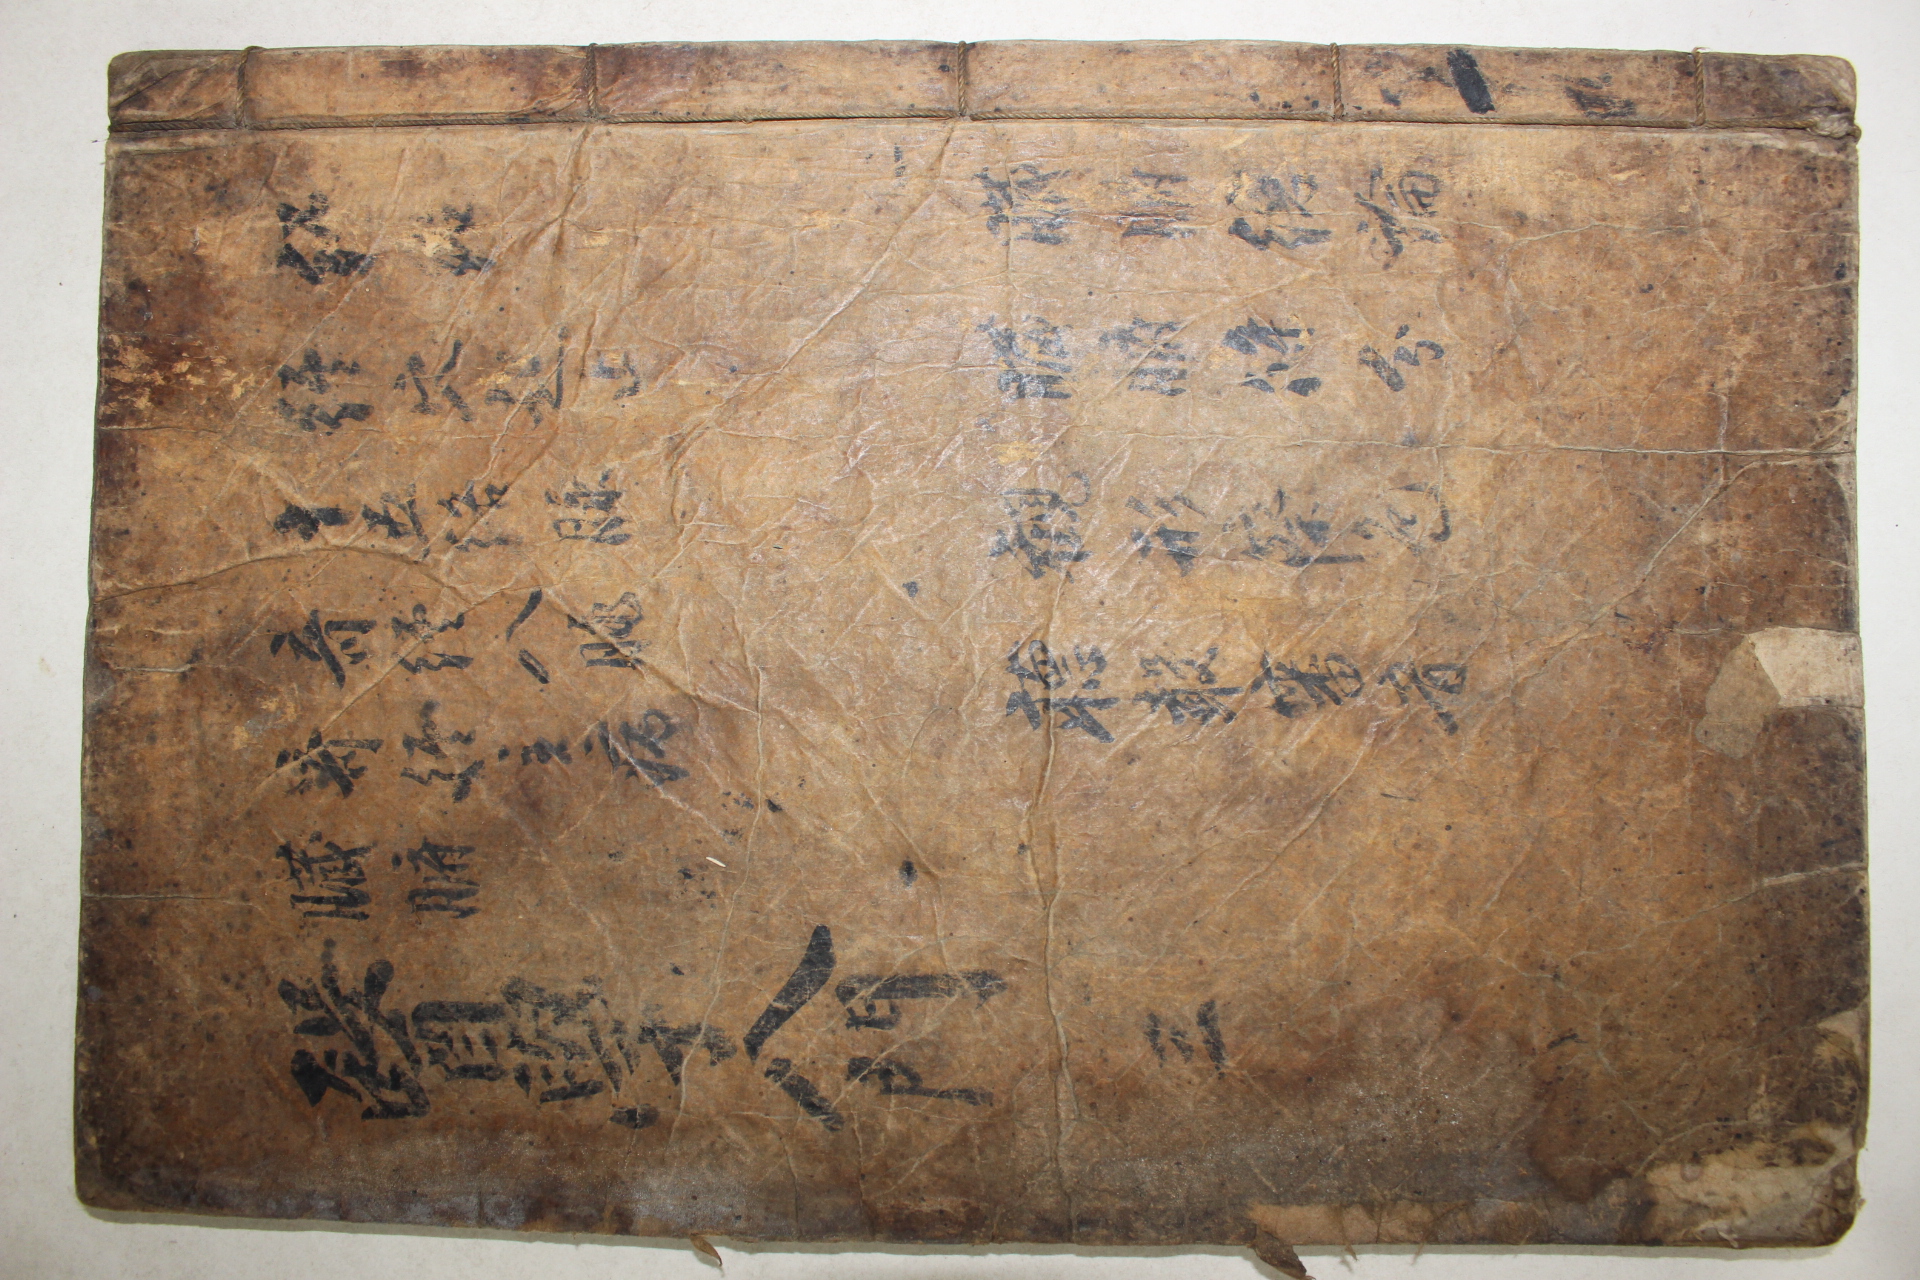 經絡
經穴起止
十五絡脉
奇經八脉
奇經主病
臟腑
臟腑總論
臟腑條分
觀形察色
聽聲審音
醫學入門 三